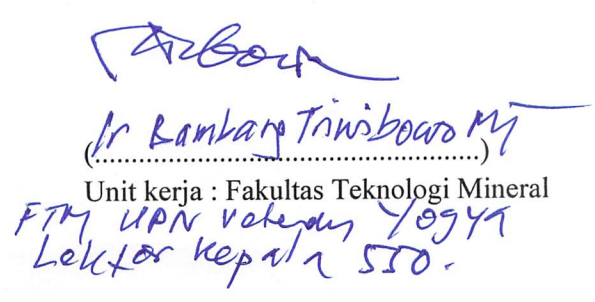 Ir Bambang Triwibowo MT
(..........................................................)
Unit kerja : Fakultas Teknologi Mineral
FTM UPN Veteran Yogya
Lektor Kepala 550.